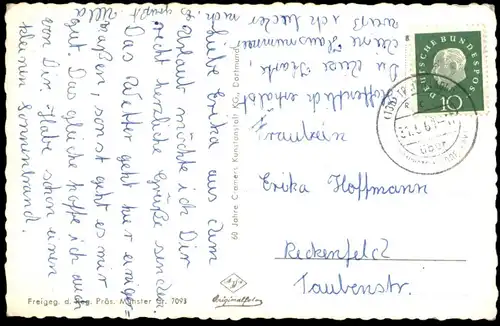 Liebe Erika aus dem
Urlaub möchte ich Dir
recht herzliche Grüße senden.
Das Wetter geht hier einiger=
maßen, sonst geht es mir
gut. Das gleiche hoffe ich auch
von Dir. Habe schon einen
kleinen Sonnenbrand.
Es grüßt Ulla
Hoffentlich erhälst
Du diese Karte,
Deine Hausnummer
weiß ich leider
nich.
Erika Hoffmann
Reckenfeld
Taubenstr.
DEUTSCHE BUNDESPOST
10
60 Jahre Cramers Kunstanstalt KG., Dortmund
Originalfoto
Freigeg. d. Reg. Präs. Münster Nr. 7093